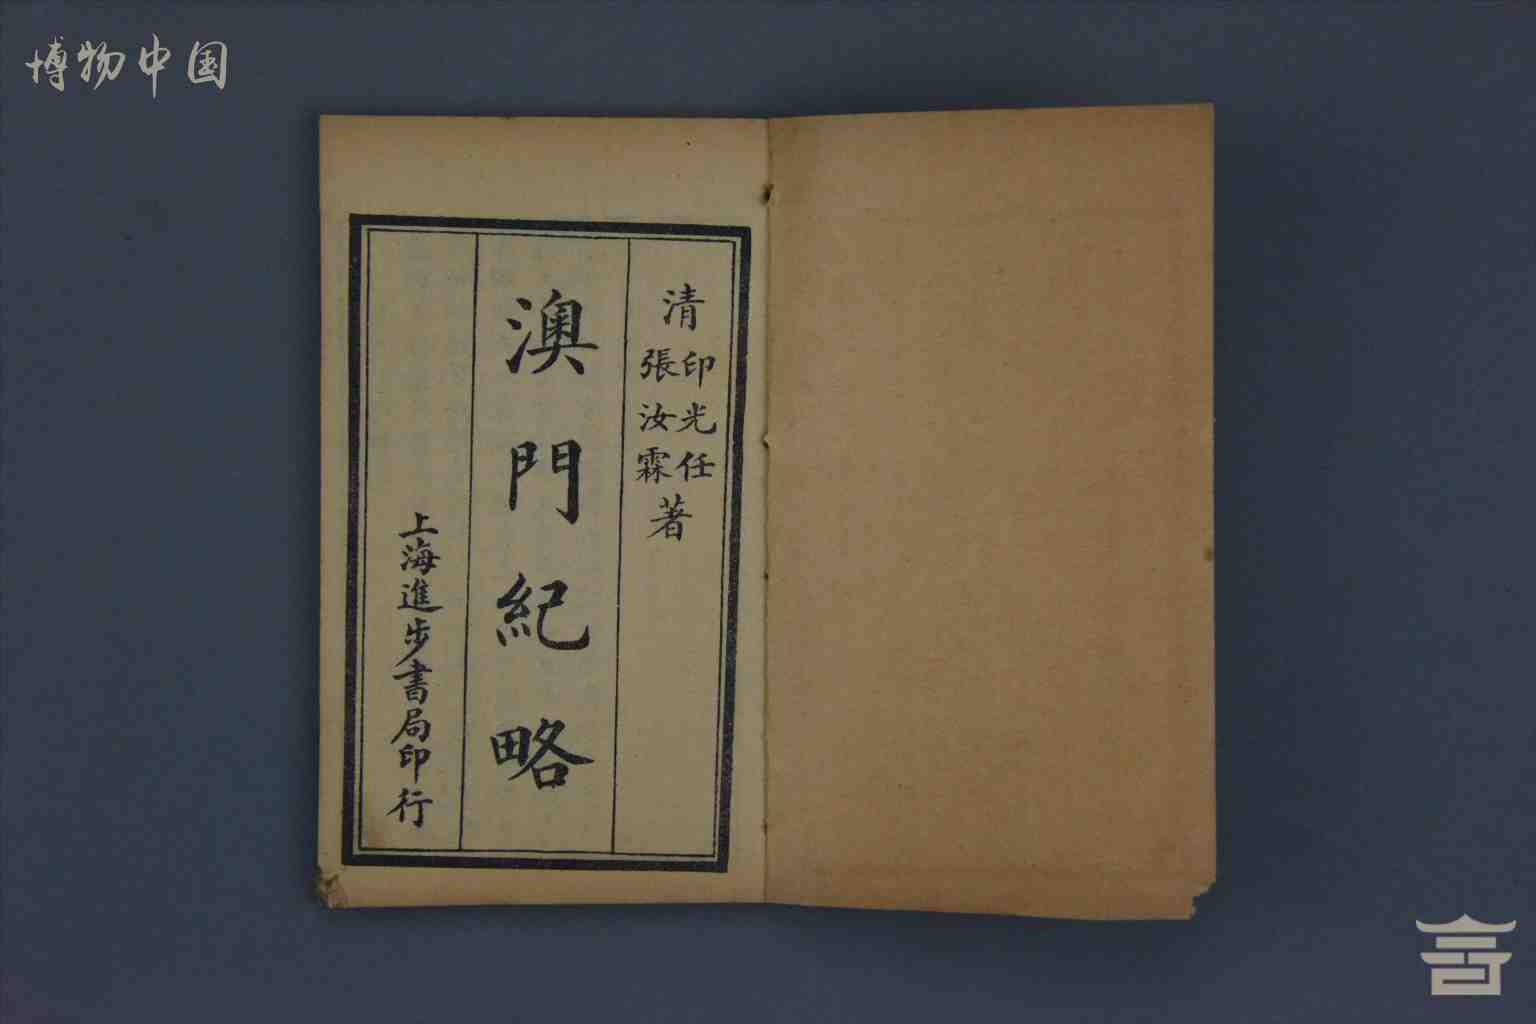 博物中国
清
印光任
張汝霖
著
澳門紀略
上海進步書局印行